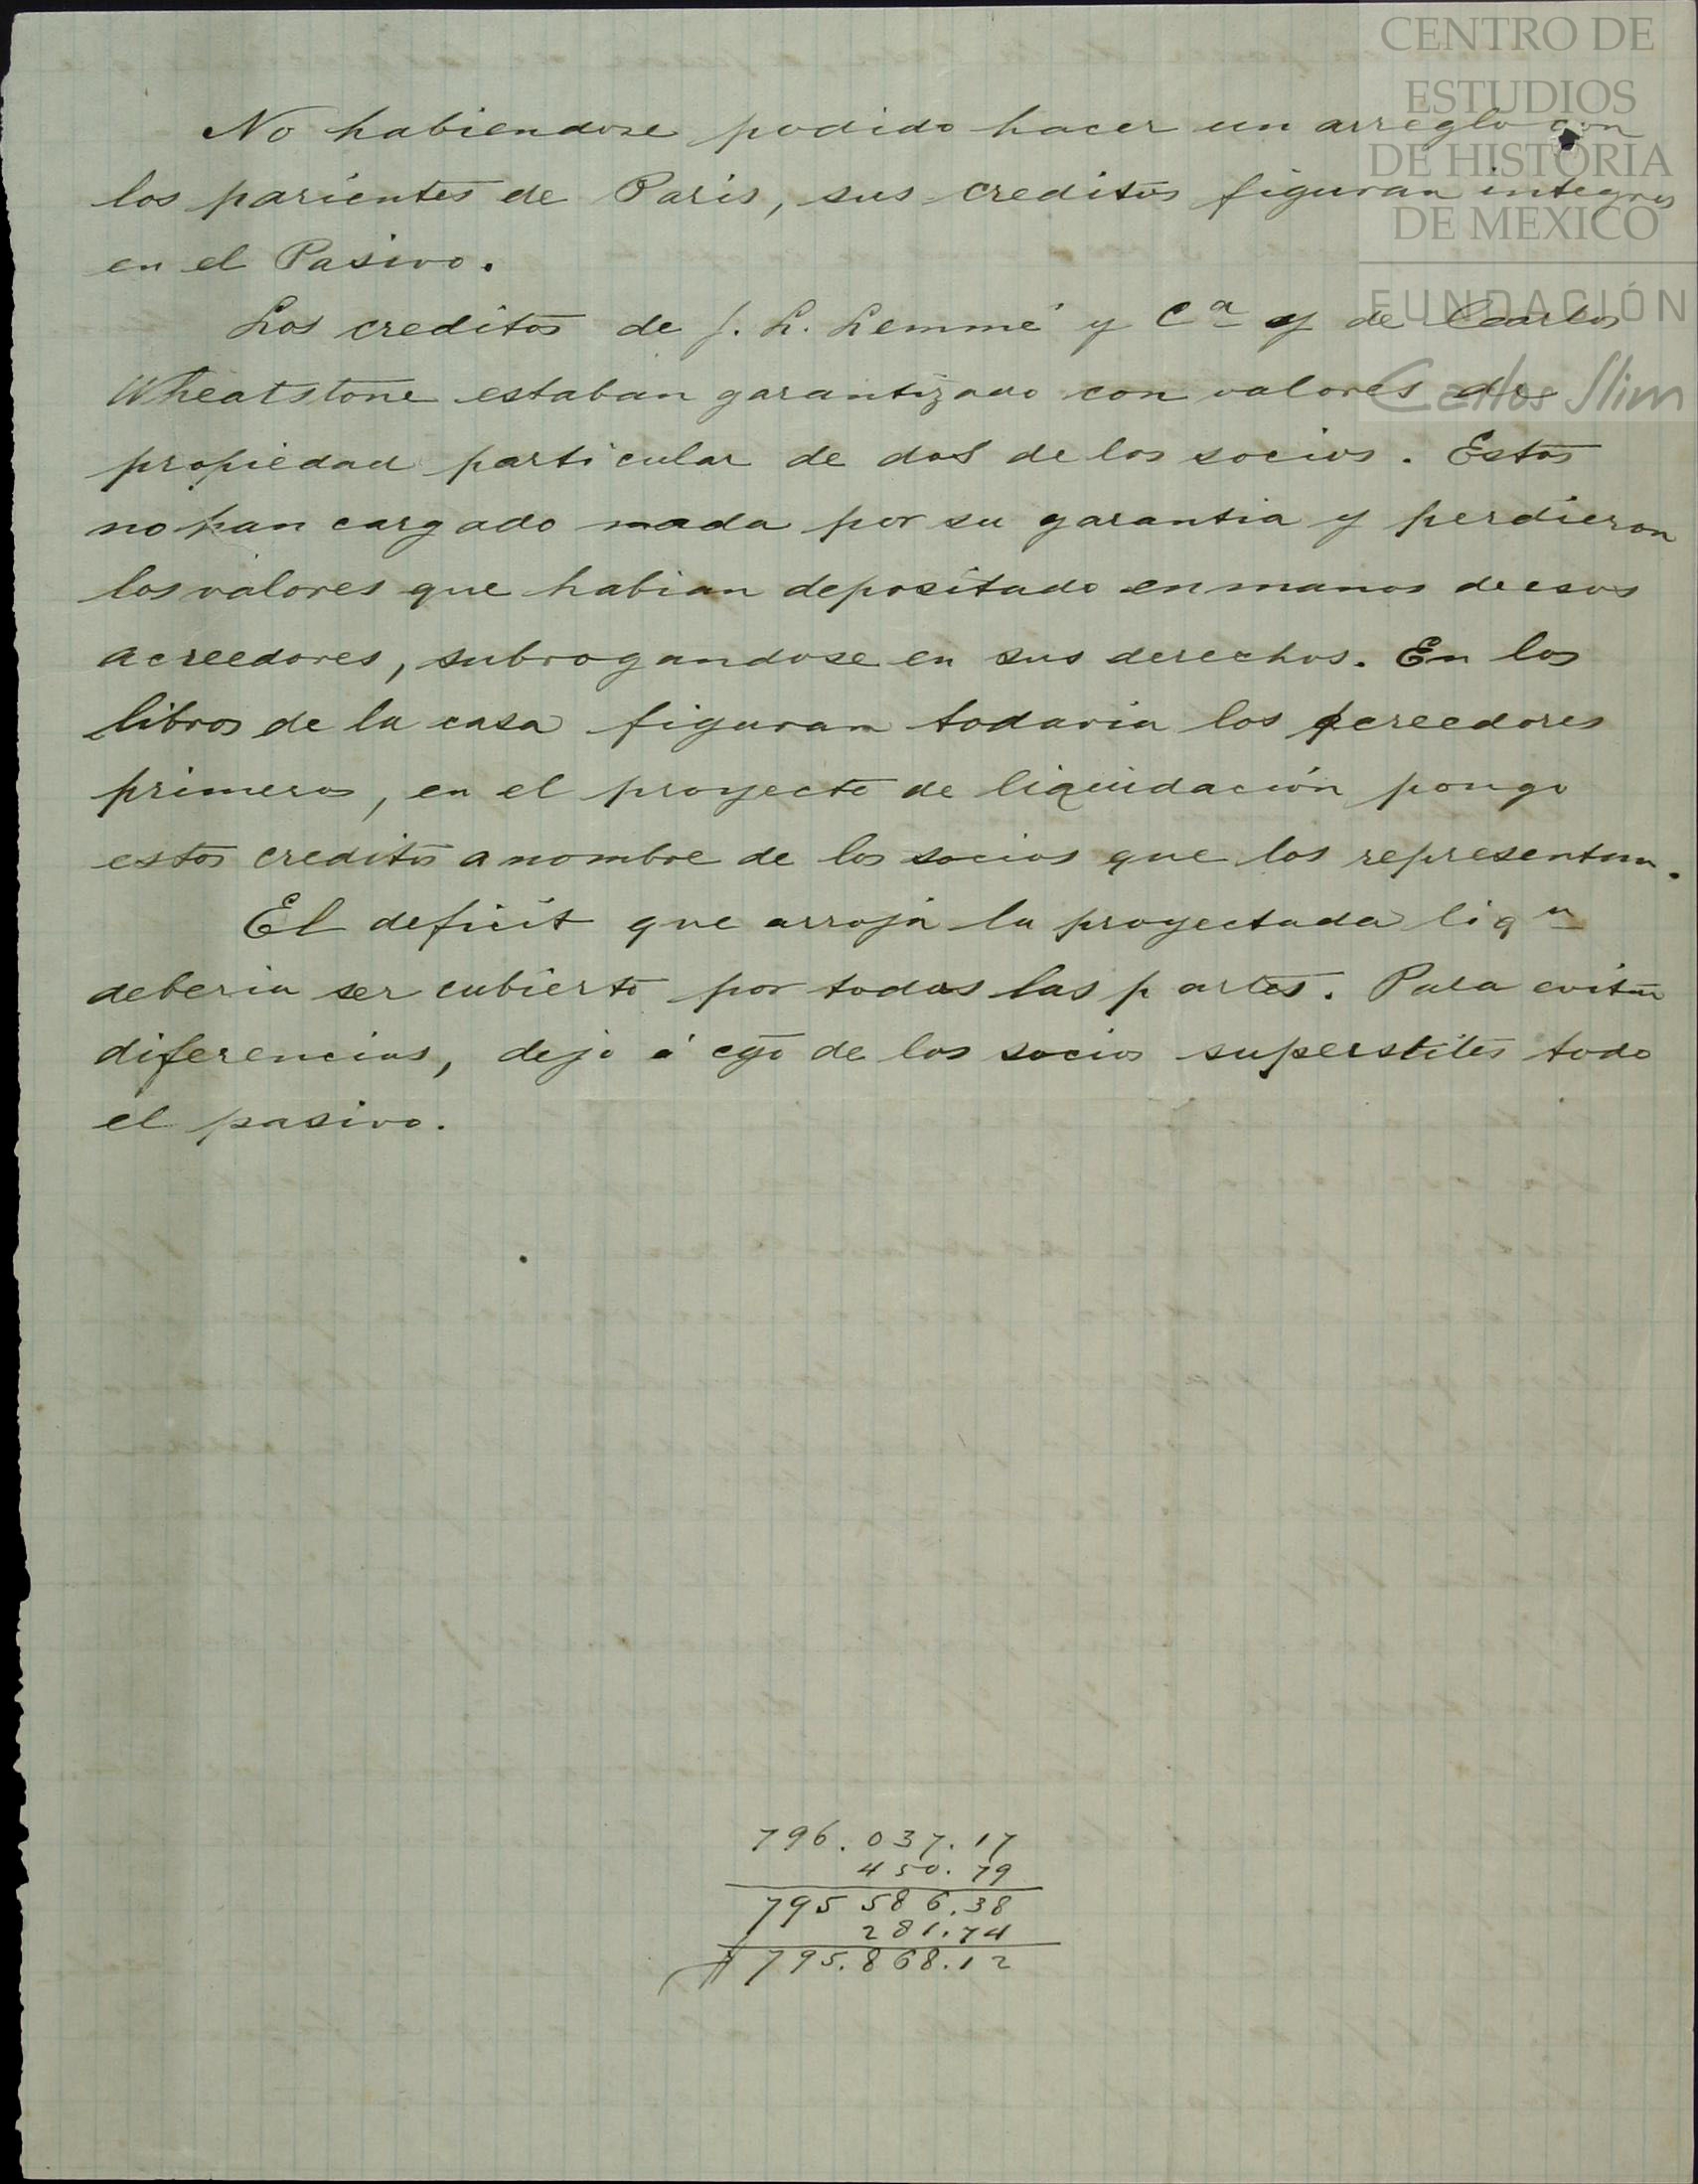 CENTRO DE
ESTUDIOS
DE HISTORIA
DE MEXICO
FUNDACIÓN
Carlos Slim
No habiendose podido hacer un arreglo con
los parientes de Paris, sus creditos figuran integros
en el Pasivo.
Los creditos de J. L. Lemmé y Cª y de Carlos
Wheatstone estaban garantizado con valores de
propiedad particular de dos de los socios. Estos
no han cargado nada por su garantia y perdieron
los valores que habian depositado en manos de esos
acreedores, subrogandose en sus derechos. En los
libros de la casa figuran todavia los acreedores
primeros, en el proyecto de liquidación pongo
estos creditos a nombre de los socios que los representan.
El deficit que arroja la proyectada liqⁿ
deberia ser cubierto por todas las partes. Para evitar
diferencias, dejo á cgo de los socios superstites todo
el pasivo.
796.037.17
450.79
795 586.38
281.74
$ 795.868.12